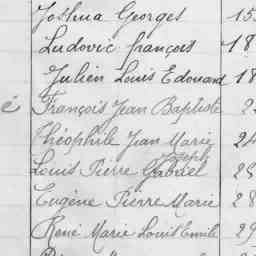 Joshua Georges 15
Ludovic françois 18
Julien Louis Edouard 18
é François Jean Baptiste 2
Théophile Jean Marie 24
Joseph
Louis Pierre Gabriel 28
Eugène Pierre Marie 28
René Marie Louis Emile 29